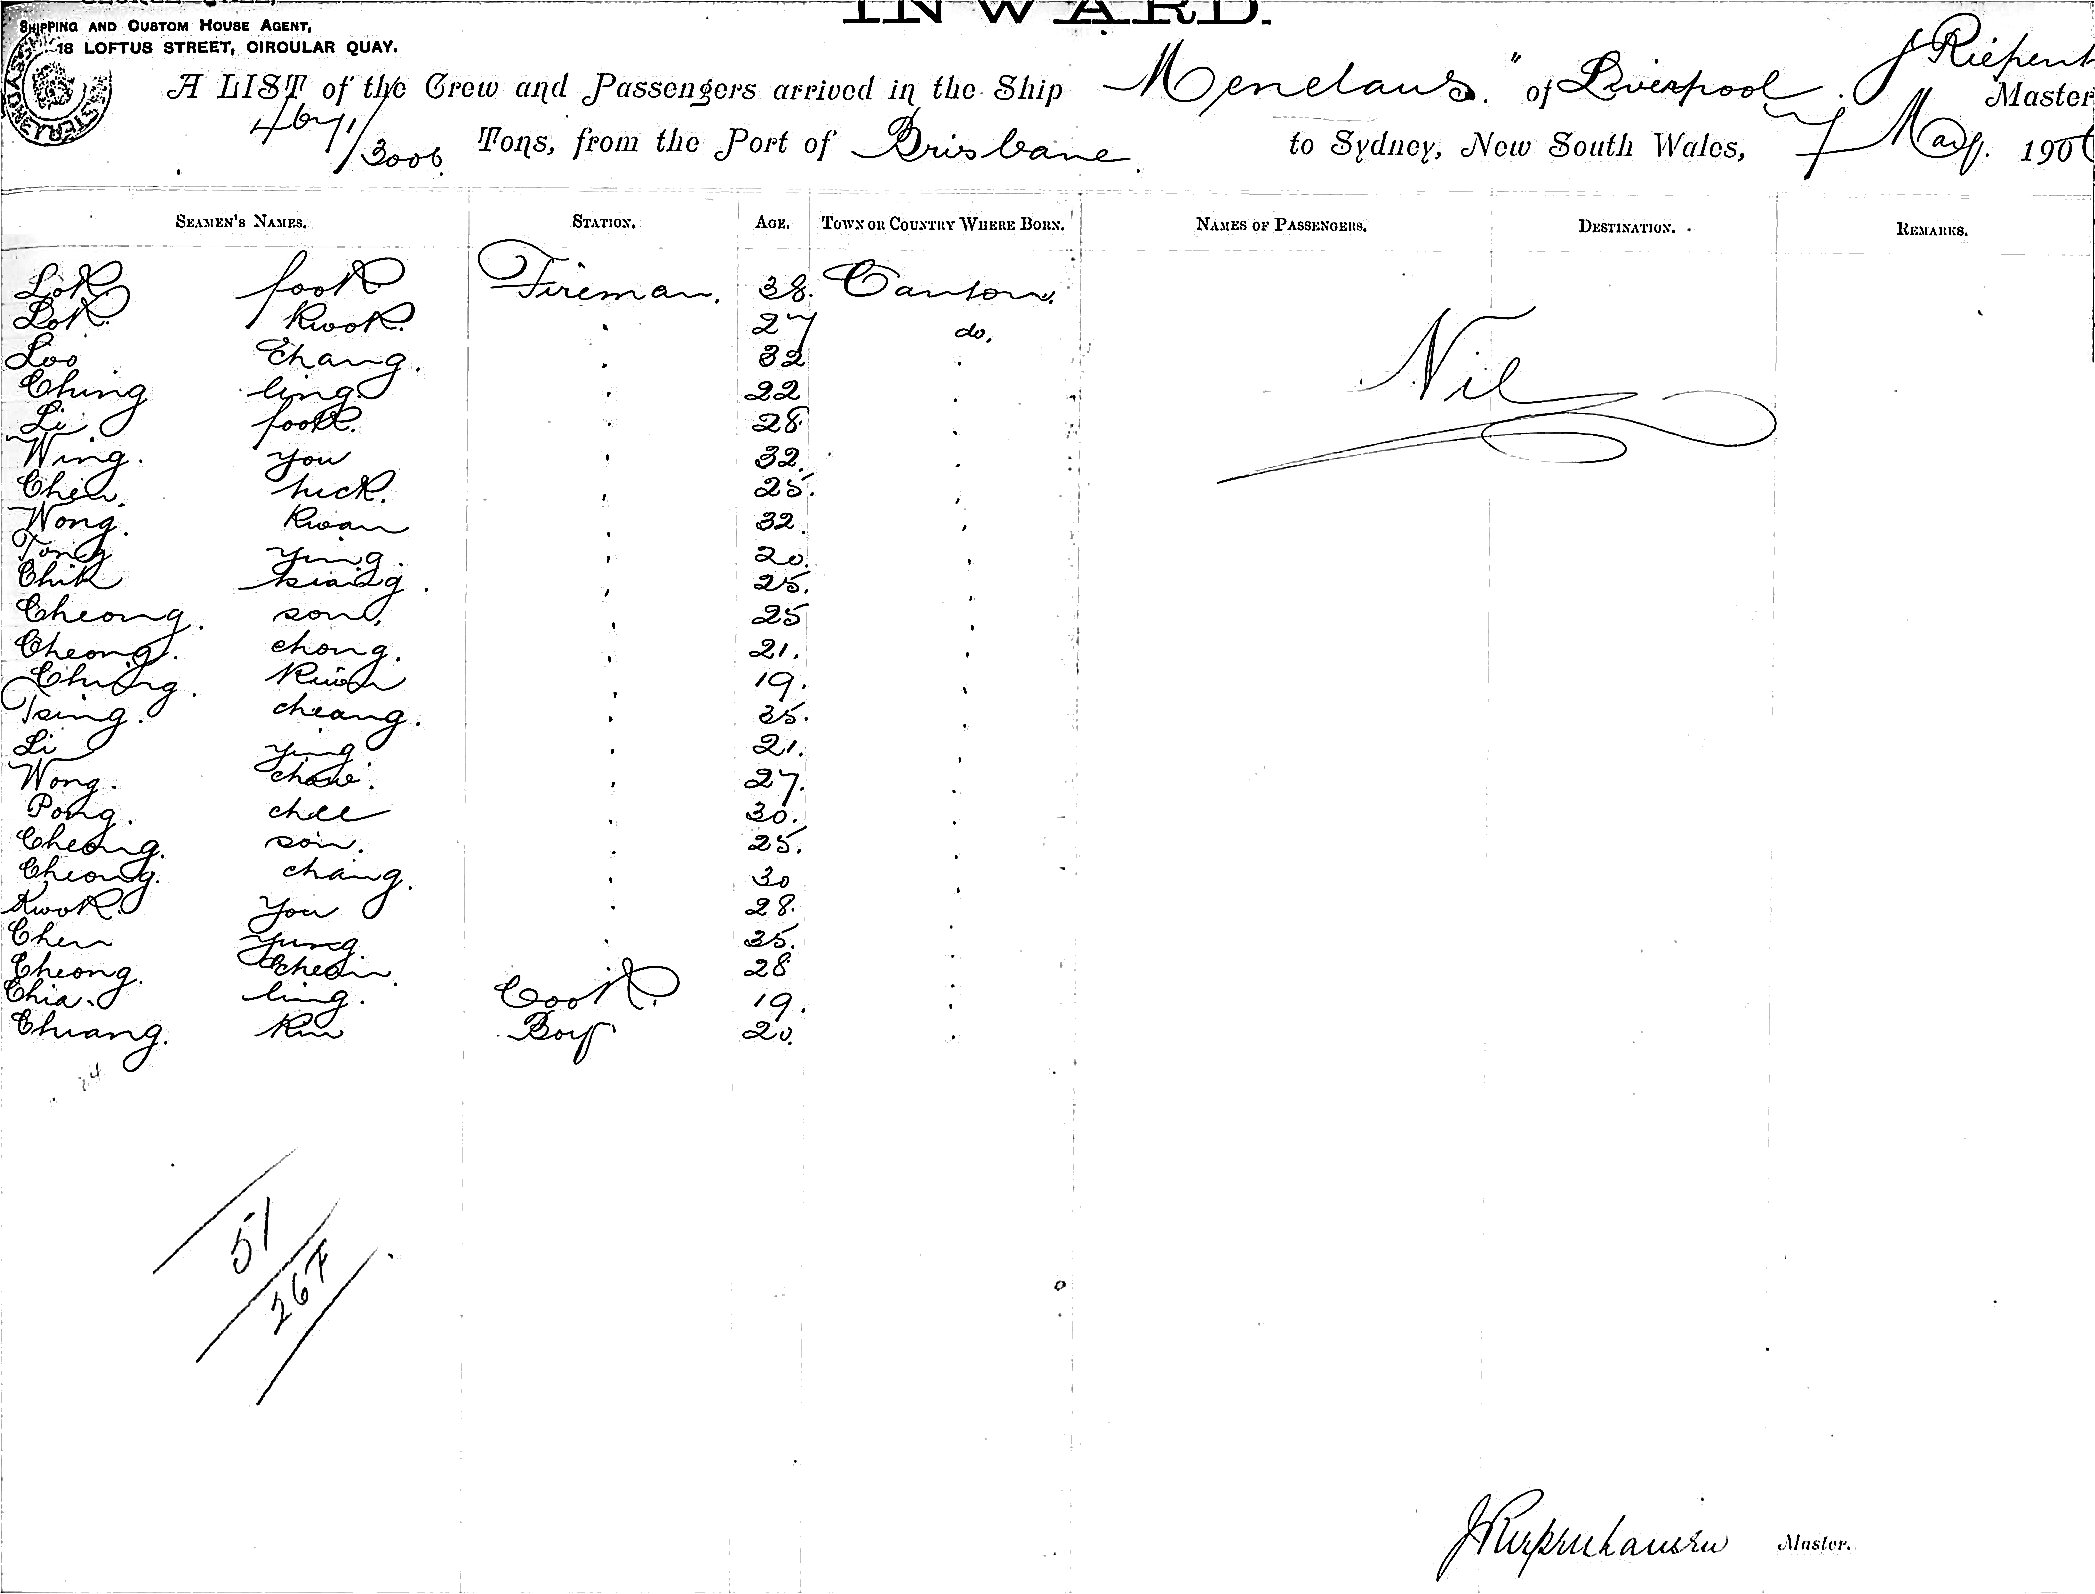 INWARD.
SHIPPING AND CUSTOM HOUSE AGENT,
18 LOFTUS STREET, CIRCULAR QUAY.
A LIST of the Crew and Passengers arrived in the Ship Menelaus." of Liverpool. J Riepent Master
4671/3006 Tons, from the Port of Brisbane. to Sydney, New South Wales, 7 May. 190
SEAMEN'S NAMES. STATION. AGE. TOWN OR COUNTRY WHERE BORN. NAMES OF PASSENGERS. DESTINATION. REMARKS.
Lok fook Fireman. 38. Canton.
Lok Kwok. 27 do.
Loo Chang. 32
Ching ling. 22
Li fook. 28
Wing. you 32.
Chen. hick. 25.
Wong. Kwan 32.
Tong ying. 20.
Chik 25.
Cheong. son. 25
Cheong. chong. 21.
Ching. 19.
Tsing. cheang. 35.
Li ying 21.
Wong. 27.
Pong. chee 30.
Cheong. son. 25.
Cheong. chang. 30
Kwok. You 28.
Chen yung. 35.
Cheong. 28
Chia. ling. Cook. 19.
Chiang. Kin Boy 20.
Nil
24
51
267
J Riepenhausen Master.